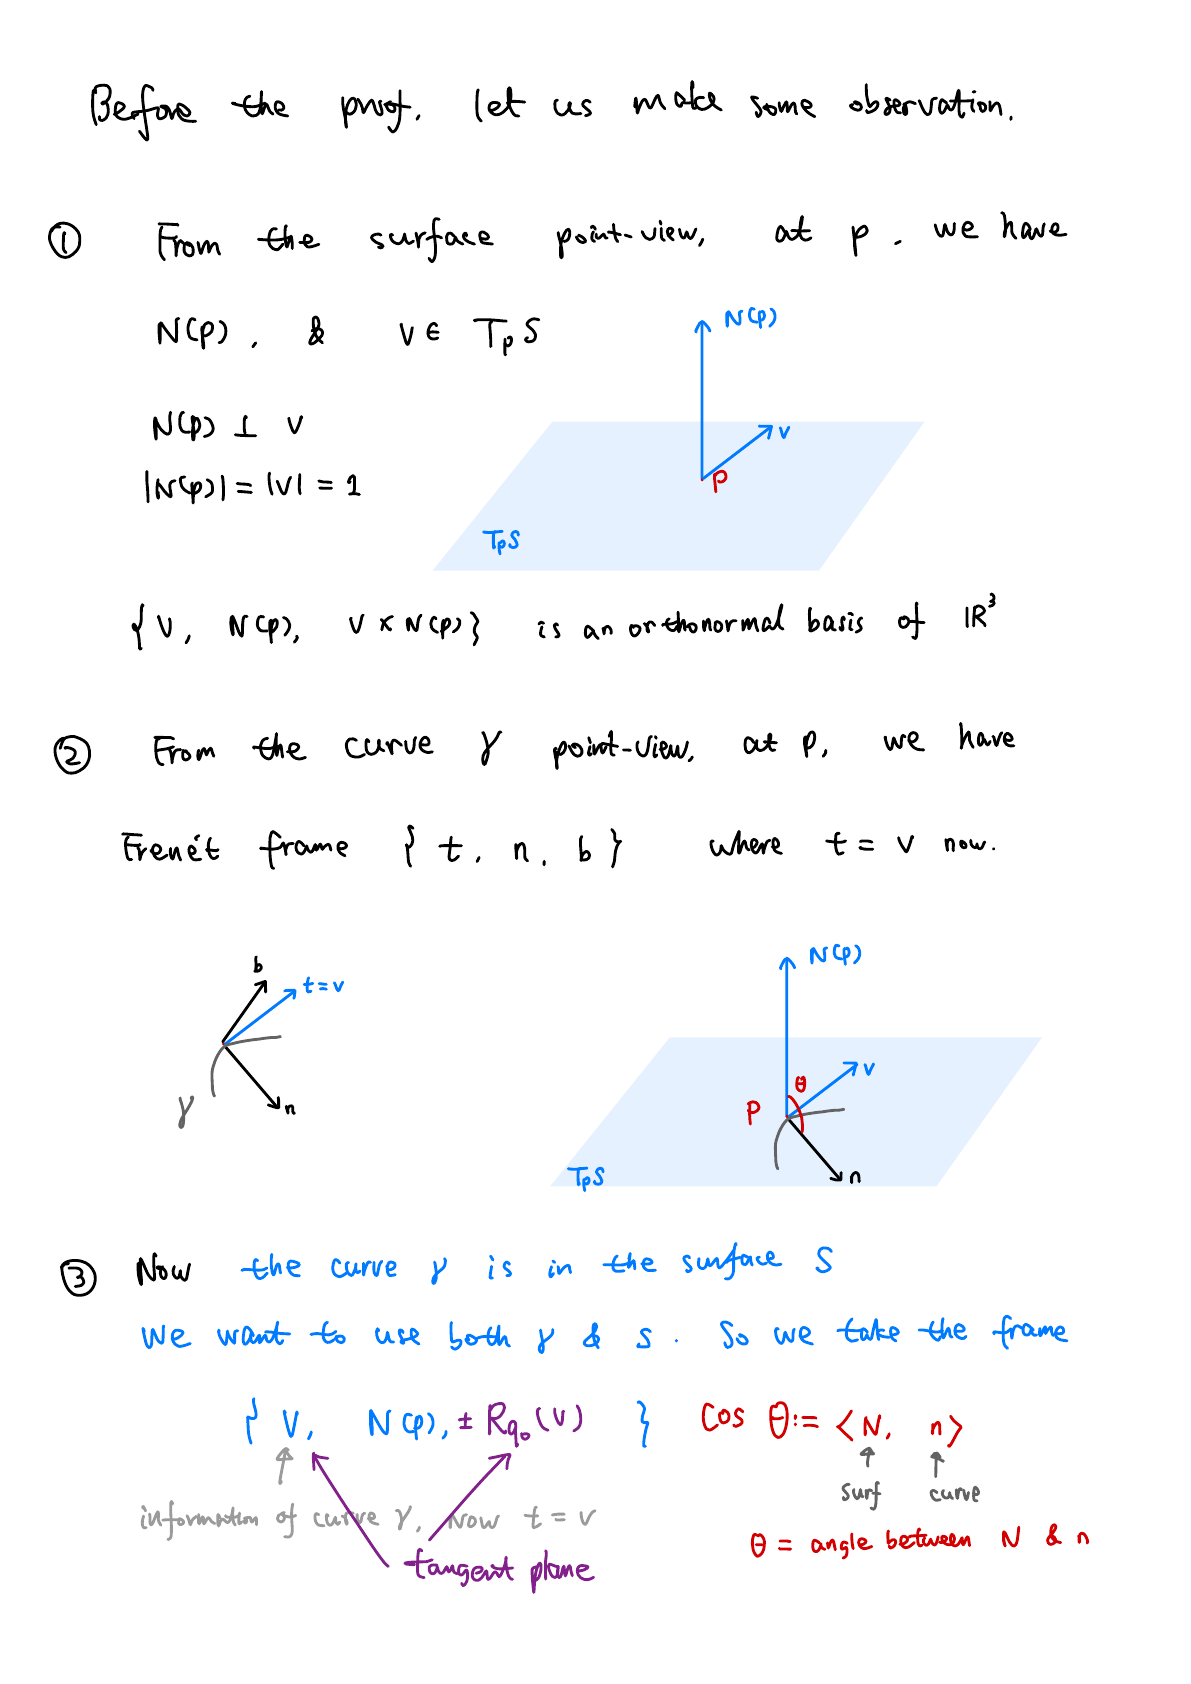 Before the proof, let us make some observation.
① From the surface point-view, at p, we have
N(p), & v ∈ TpS
N(p)
N(p) ⊥ v
v
|N(p)| = |v| = 1
p
TpS
{v, N(p), v × N(p)} is an orthonormal basis of ℝ³
② From the curve γ point-view, at p, we have
Frenét frame {t, n, b} where t = v now.
b
t = v
n
γ
N(p)
θ
v
p
n
TpS
③ Now the curve γ is in the surface S
We want to use both γ & S. So we take the frame
{v, N(p), ± Rq₀(v)} cos θ := ⟨N, n⟩
surf curve
information of curve γ, Now t = v
θ = angle between N & n
tangent plane